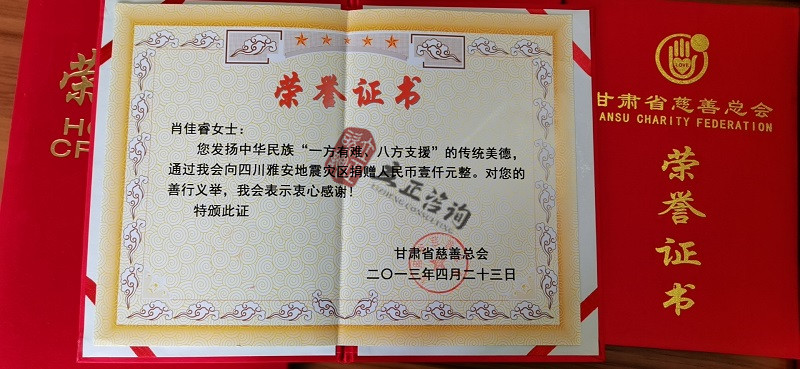 荣誉证书
肖佳睿女士：
您发扬中华民族“一方有难、八方支援”的传统美德，
通过我会向四川雅安地震灾区捐赠人民币壹仟元整。对您的
善行义举，我会表示衷心感谢！
特颁此证
甘肃省慈善总会
二〇一三年四月二十三日
正咨询
LIZHENG CONSULTING
荣
HO
CE
LOVE
甘肃省慈善总会
ANSU CHARITY FEDERATION
荣誉证书